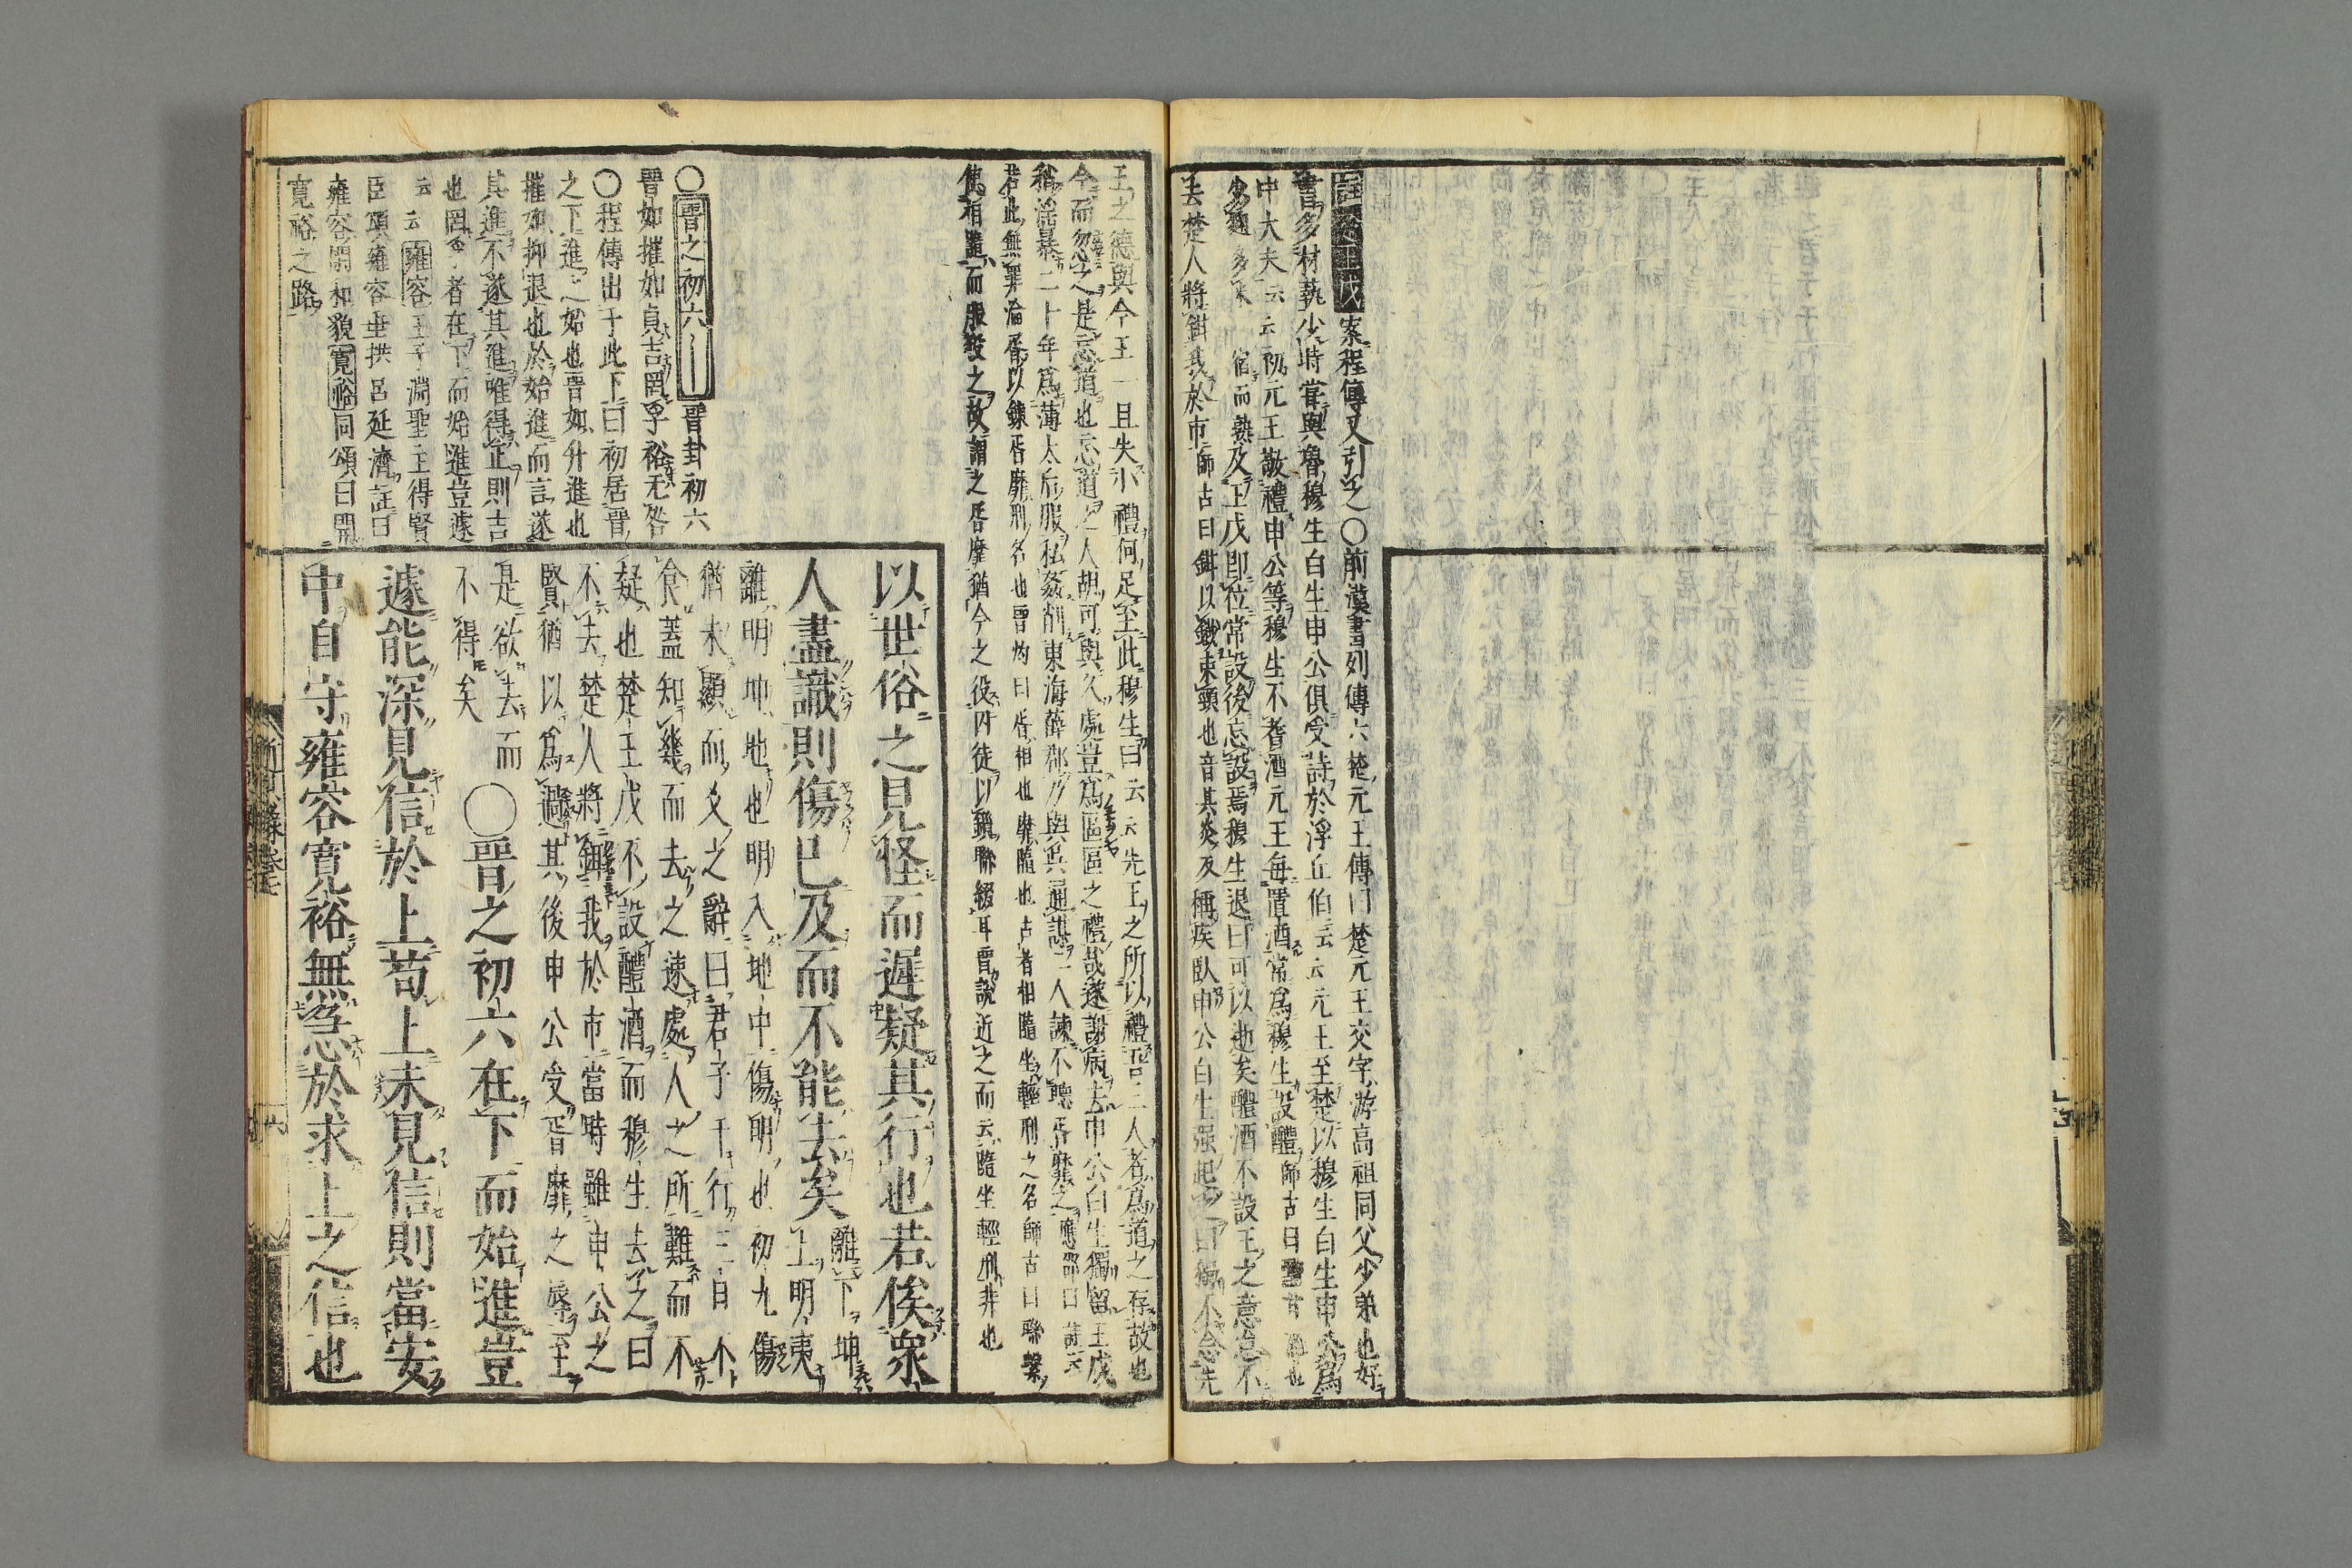 案程傳又引之〇前漢書列傳六楚元王傳曰楚元王交字游高祖同父少弟也好
書多材藝少時嘗與魯穆生白生申公俱受詩於浮丘伯云云元王至楚以穆生白生申公爲
中大夫云云初元王敬禮申公等穆生不耆酒元王每置酒常爲穆生設醴師古曰
宿而熟及王戊即位常設後忘設焉穆生退曰可以逝矣醴酒不設王之意怠不
去楚人將鉗我於市師古曰鉗以鐵束頸也音其炎反稱疾臥申公白生强起之曰獨不念先
王之德與今王一旦失小禮何足至此穆生曰云云先王之所以禮吾三人者爲道之存故也
今而忽之是忘道也忘道之人胡可與久處豈爲區區之禮哉遂謝病去申公白生獨留王戊
稍淫暴二十年爲薄太后服私姦削東海薛郡乃與吳通謀二人諫不聽胥靡之應邵曰詩云
若此無罪淪胥以鋪胥靡刑名也晉灼曰胥相也靡隨也古者相隨坐輕刑之名師古曰聯繫
使相隨而服役之故謂之胥靡猶今之役囚徒以鎖聯綴耳晉說近之而云隨坐輕刑非也
以世俗之見怪而遲疑其行也若俟衆
人盡識則傷已及而不能去矣離下坤
上明夷
離明坤地也明入地中傷明也初九傷
猶未顯而爻之辭曰君子于行三日不
食蓋知幾而去之速處人之所難而不
疑也楚王戊不設醴酒而穆生去之曰
不去楚人將鉗我於市當時雖申公之
賢猶以爲過其後申公受胥靡之辱至
是欲去而
不得矣
〇晉之初六在下而始進豈
遽能深見信於上苟上未見信則當安
中自守雍容寛裕無急於求上之信也
〇晉之初六
晉卦初六
晉如摧如貞吉罔孚裕无咎
〇程傳出于此下曰初居晉
之下進之始也晉如升進也
摧如抑退也於始進而言遂
其進不遂其進唯得正則吉
也罔孚者在下而始進豈遽
云云雍容王子淵聖主得賢
臣頌雍容垂拱呂延濟註曰
雍容閑和貌寛裕同頌曰開
寛裕之路